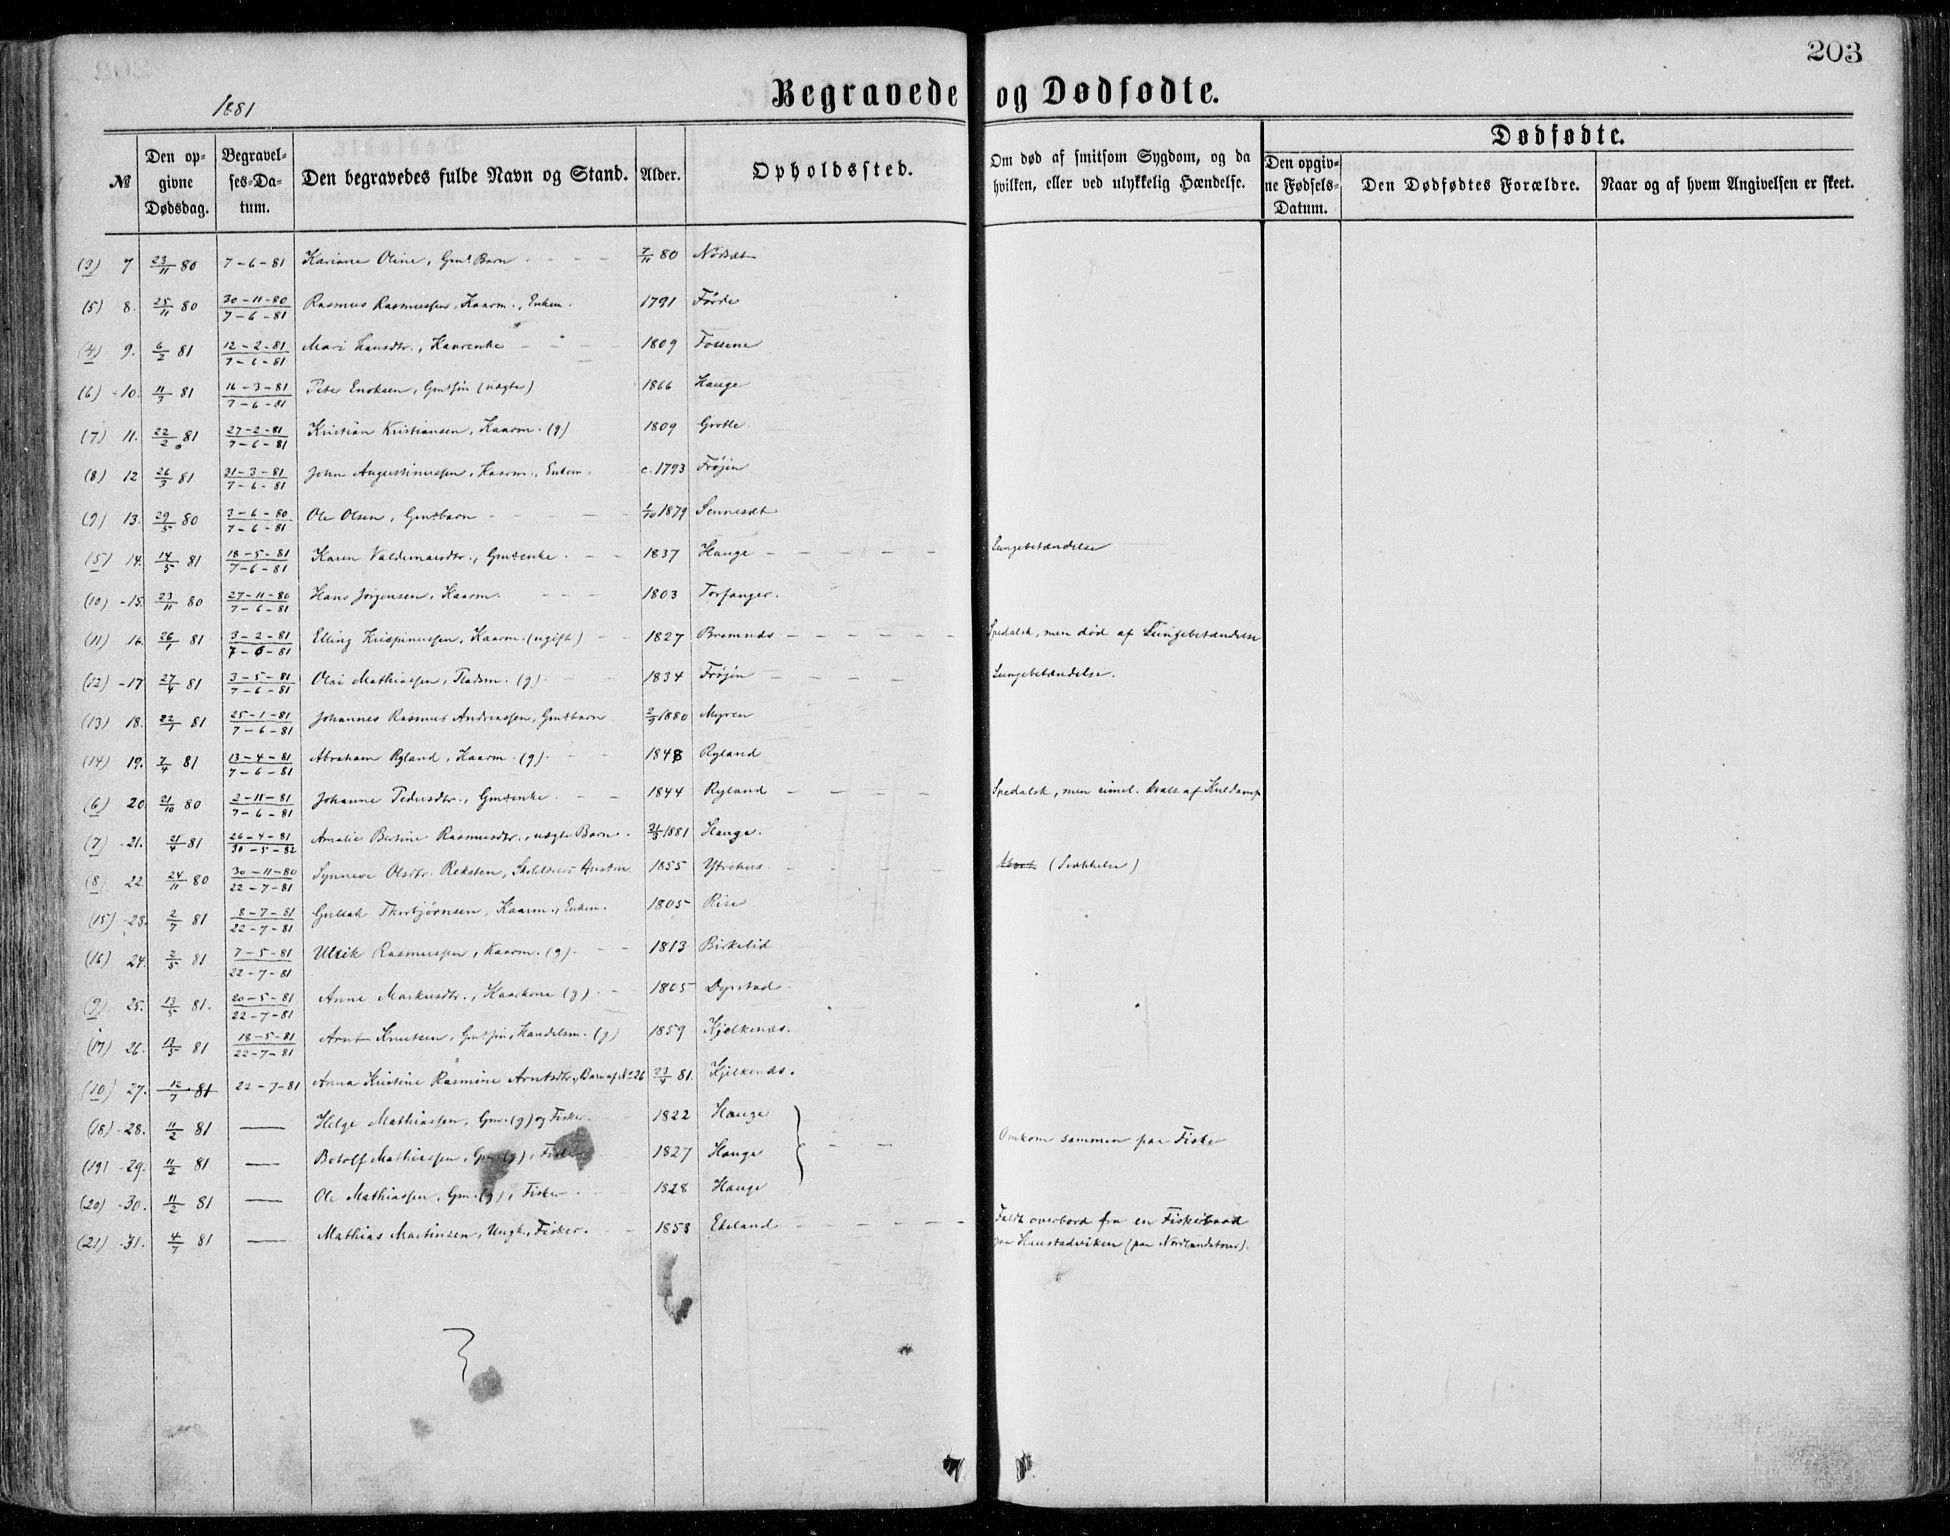 203
1881
Begravede og Dødfødte.
№
Den opgivne Dødsdag.
Begravelses-Datum.
Den begravedes fulde Navn og Stand.
Alder.
Opholdssted.
Om død af smitsom Sygdom, og da hvilken, eller ved ulykkelig Hændelse.
Dødfødte.
Den opgivne Fødsels-Datum.
Den Dødfødtes Forældre.
Naar og af hvem Angivelsen er skeet.
(3) 7 23/11 80 7-6-81 Kariane Oline, Gmds Barn 7/11 80 Nordset
(5) 8. 25/11 80 30-11-80 7-6-81 Rasmus Rasmussen, Kaarm., Enkem. 1791 Førde
(4) 9. 6/2 81 12-2-81 7-6-81 Mari Hansdtr., Kaarenke 1809 Fossene
(6) 10. 11/3 81 16-3-81 7-6-81 Peter Enoksen, Gmdsøn (uægte) 1866 Hauge
(7) 11. 22/2 81 27-2-81 7-6-81 Kristian Kristiansen, Kaarm. (g) 1809 Grotle
(8) 12 26/3 81 31-3-81 7-6-81 John Augustinussen, Kaarm., Enkem. c. 1793 Frøjen
(9) 13. 29/5 80 3-6-80 7-6-81 Ole Olsen, Gmdsbarn 1/10 1879 Sennesæt
(5) 14. 14/5 81 18-5-81 7-6-81 Karen Valdemarsdtr., Gmdsenke 1837 Hauge Lungebetændelse
(10) 15. 23/11 80 27-11-80 7-6-81 Hans Jørgensen, Kaarm. 1803 Torfanger
(11) 16. 26/1 81 3-2-81 7-6-81 Elling Krispinussen, Kaarm. (ugift) 1827 Bremnæs Spedalsk, men død af Lungebetændelse
(12) 17 27/4 81 3-5-81 7-6-81 Olai Mathiassen, Pladsm. (g) 1834 Frøjen Lungebetændelse.
(13) 18. 22/1 81 25-1-81 7-6-81 Johannes Rasmus Andreassen, Gmdsbarn 2/9 1880 Myren
(14) 19. 7/4 81 13-4-81 7-6-81 Abraham Ryland, Kaarm. (g) 1848 Ryland
(6) 20 21/10 80 2-11-81 7-6-81 Johanne Pedersdtr., Gmdsenke 1844 Ryland Spedalsk, men kvalt af Kuldamp
(7) 21. 21/4 81 26-4-81 30-5-82 Amalie Bertine Rasmusdtr., uægte Barn 31/3 1881 Hauge
(8) 22. 24/11 80 30-11-80 22-7-81 Synneve Olsdtr. Reksten, Skolelærers Hustru 1855 Ytrehus
(15) 23. 2/7 81 8-7-81 22-7-81 Gullak Thorbjørnsen, Kaarm., Enkem. 1805 Rise
(16) 24. 2/5 81 7-5-81 22-7-81 Ulrik Rasmussen, Kaarm. (g) 1813 Birkelid
(9) 25. 13/5 81. 20-5-81 22-7-81 Anne Markusdtr., Kaarkone (g) 1805 Dyrstad
(17) 26. 13/5 81 18-5-81 22-7-81 Arnt Knutsen, Gmdsøn, Handelsm. (g) 1859 Kjelkenæs.
(10) 27. 12/7 81 22-7-81 Anna Kristine Rasmine Arntsdtr., Barn af No 26 23/4 81. Kjelkenæs.
(18) 28. 11/2 81 Helge Mathiassen, Gm. (g) og Fisker 1822 Hauge
(19) 29. 11/2 81 Botolf Mathiassen, Gm. (g), 1827 Hauge Omkom sammen paa Fiske
(20) 30. 11/2 81 Ole Mathiassen, Gm. (g), Fisker 1828 Hauge
(21) 31. 4/7 81 Mathias Martinsen, Ungk., Fisker. 1853 Ekeland Faldt overbord fra en Fiskerbaad
paa Haustadviken (paa Nordlandstour).